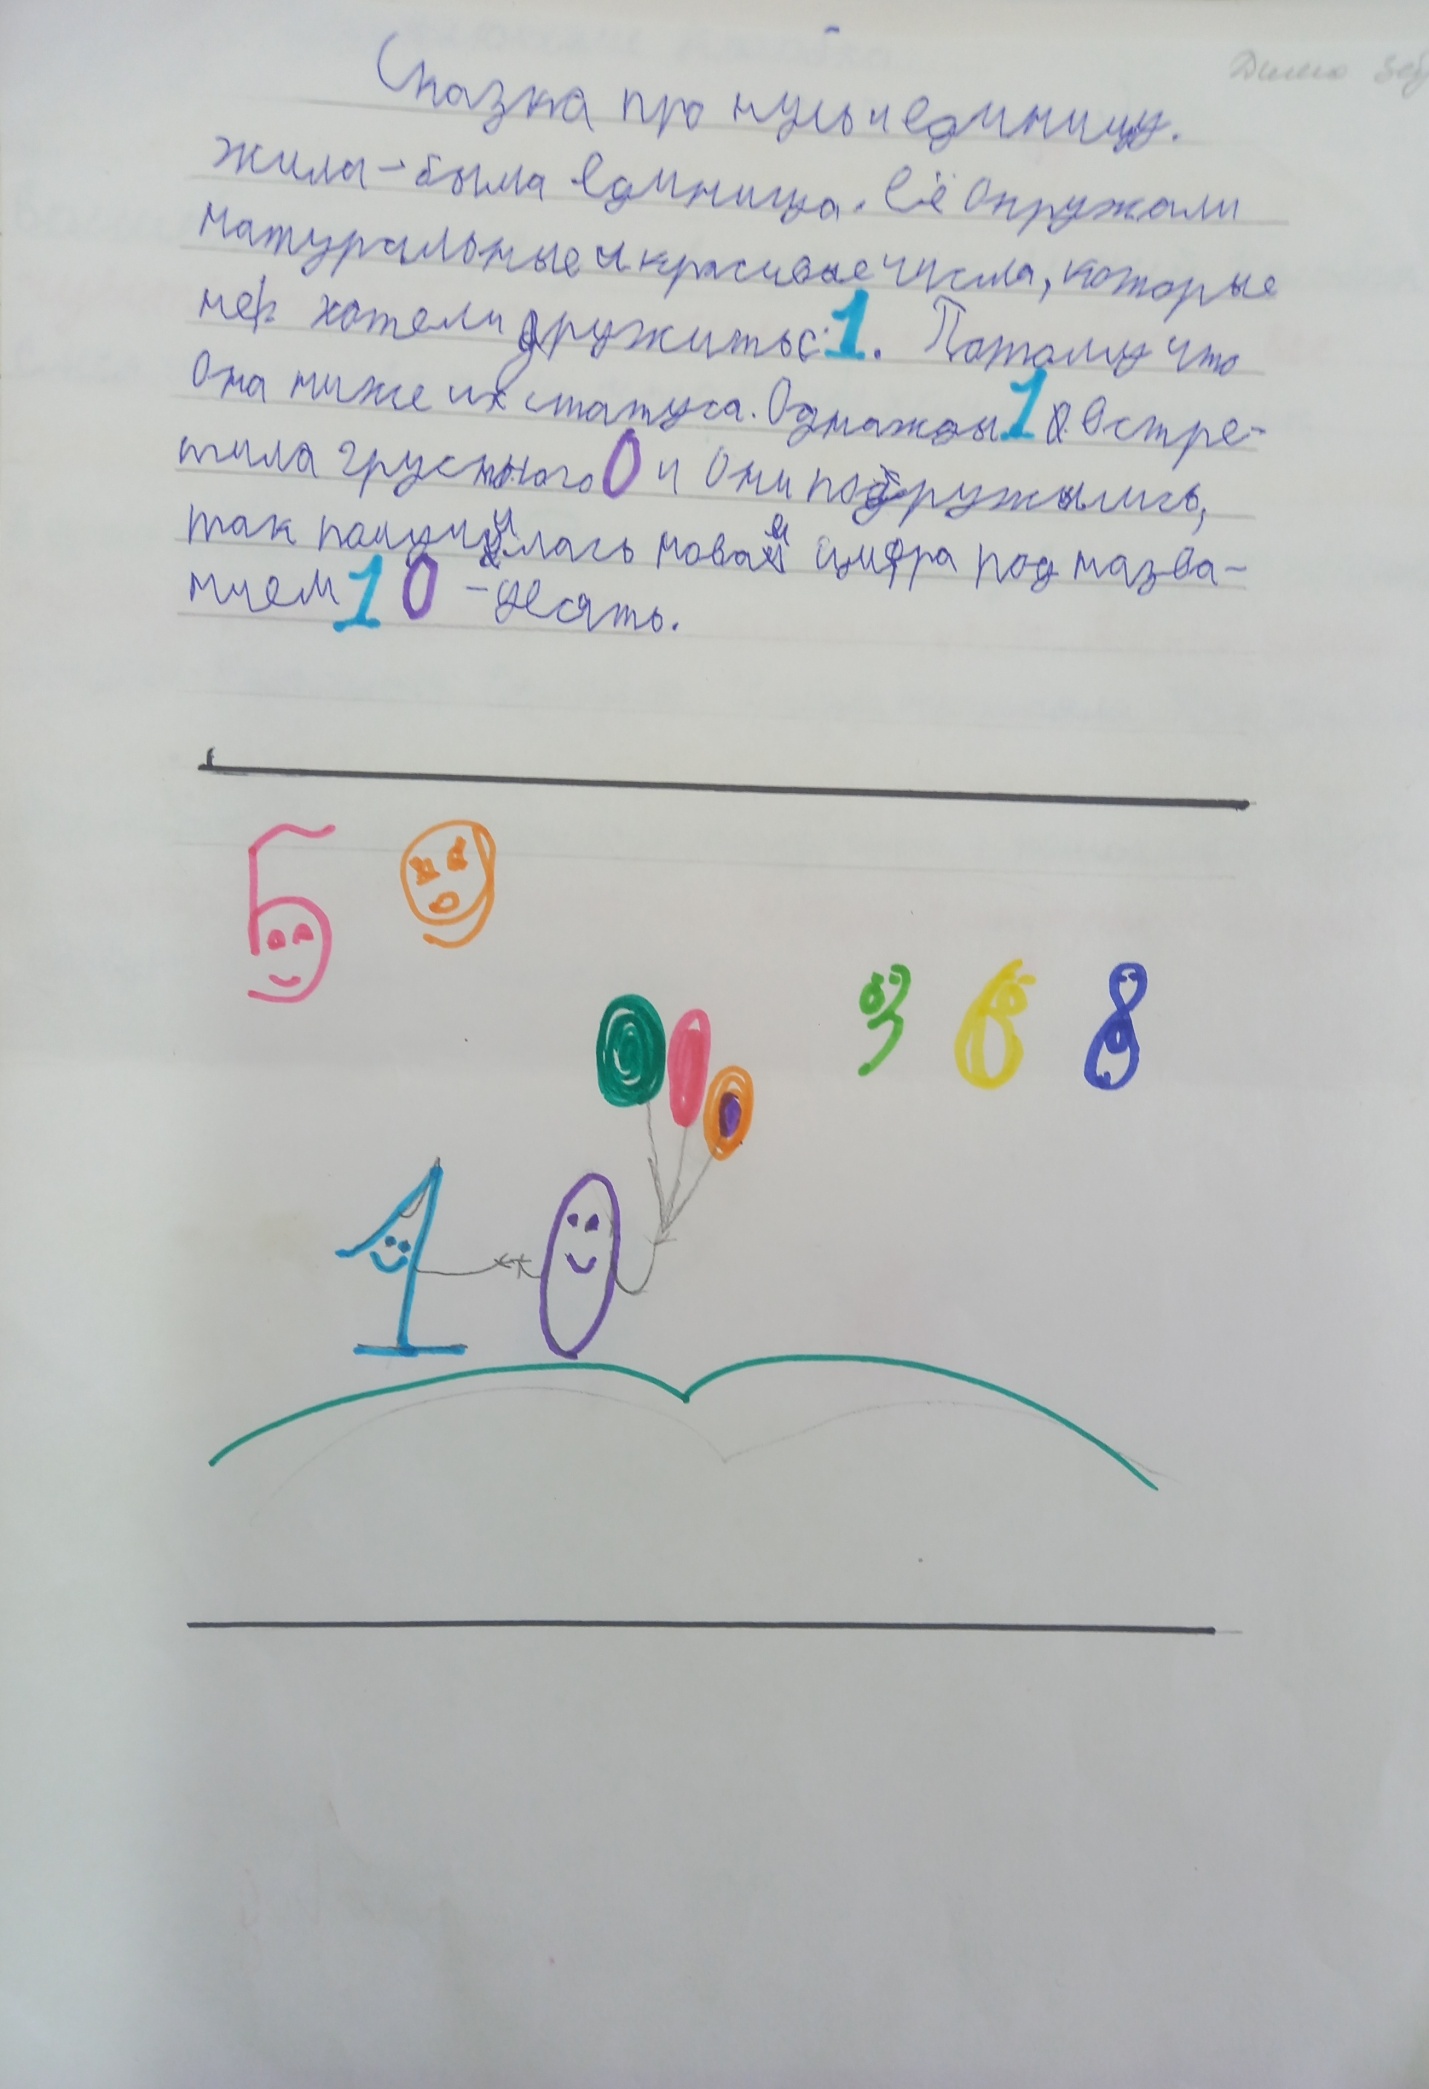 Сказка про нуль и единицу.
Жила-была Единица. Её окружали
натуральные и красивые числа, которые
не хотели дружить с 1. Потому что
Она ниже их статуса. Однажды 1 встре-
тила грустного 0 и Они подружились,
так получилась новая цифра под назва-
нием 10 - десять.
5
3 6 8
1 0